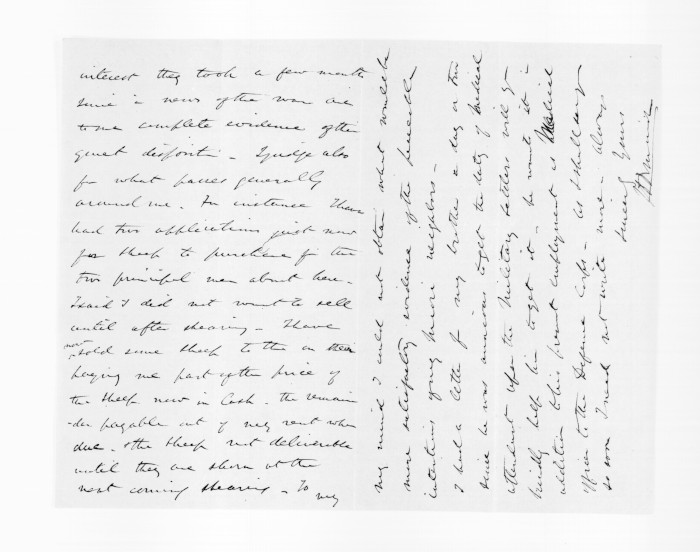 interest they took a few months
since in news of the war are
to me complete evidence of their
quiet disposition - I judge also
from what passes generally
around me. For instance I have
had two applications just now
for sheep to purchase from the
two principal men about here -
I said I did not want to sell
until after shearing - I have
now sold some sheep to them on their
paying me part of the price of
the sheep now in Cash - the remain
-der payable out of my rent when
due - the sheep not deliverable
until they are shorn at the
next coming shearing - To my
my mind I could not obtain what would be
more satisfactory evidence of the peaceable
intentions of my Maori neighbors -
I had a letter from my brother a day or two
since he was anxious to get the duty of Medical
attendant upon the Military Settlers will you
kindly help him to get it - he wants it in
addition to his present employment as Medical
Officer to the Defence Corps - As I shall see you
so soon I need not write more - always
Sincerely Yours